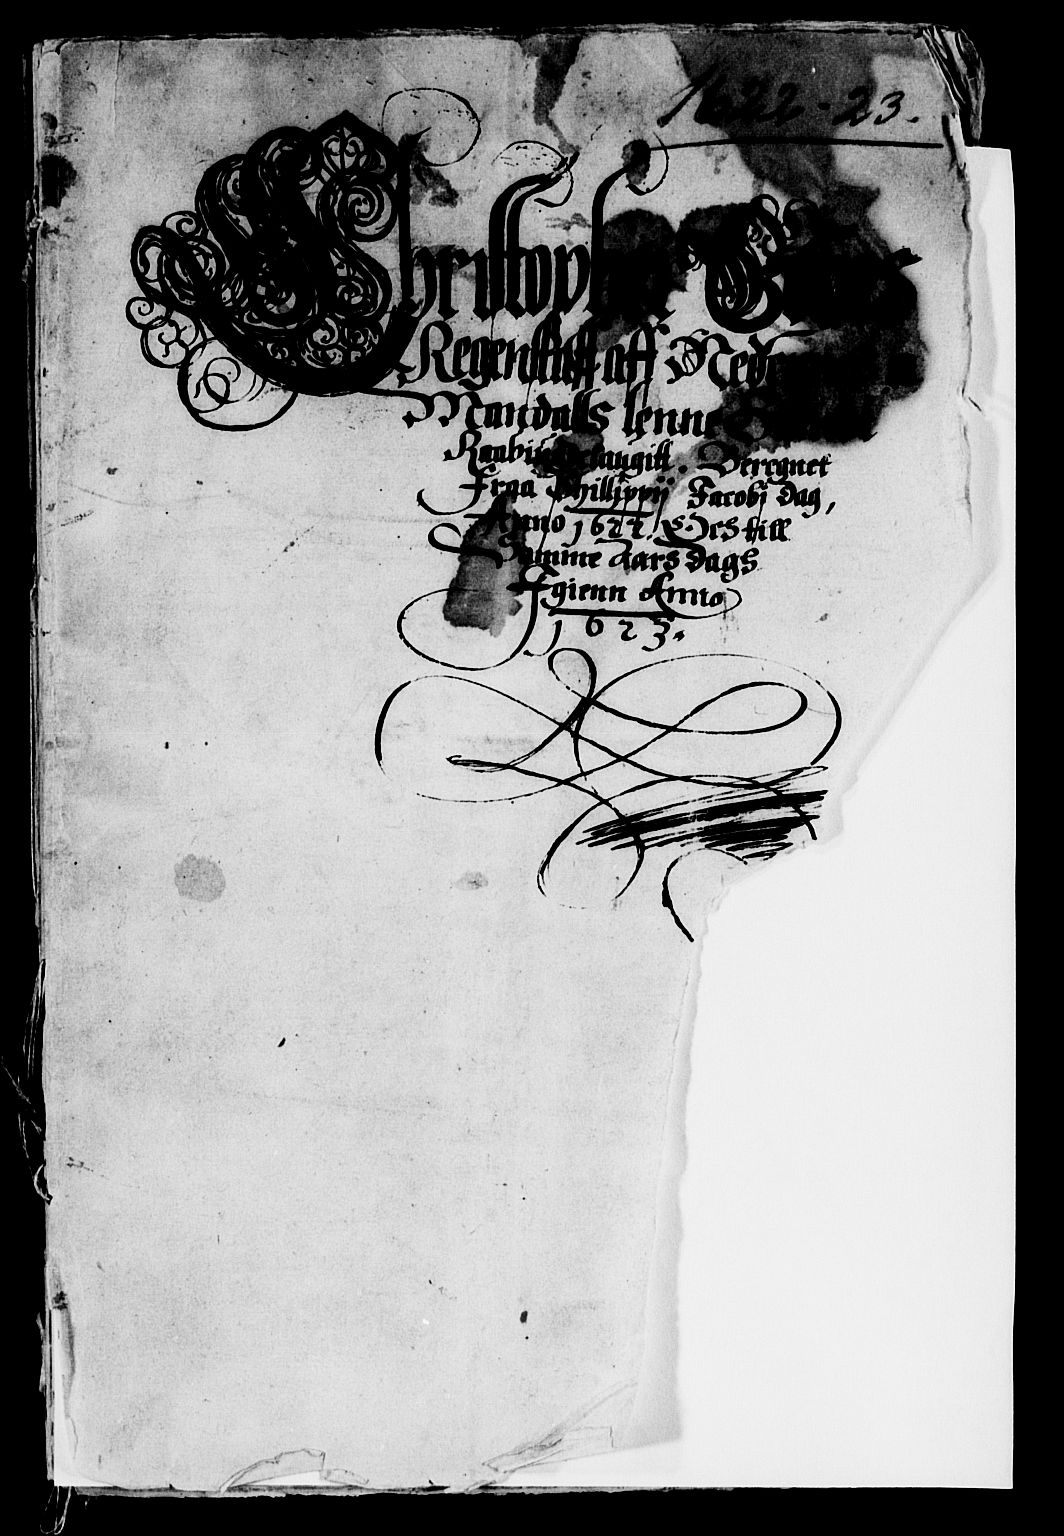 1622-23.
Christopher
Regenskaff aff Ned
Mandalls lenne
Raabiu laugitt. Beregnet
Fraa Phillippij Jacobj dag,
Anno 1622. Ocs till
Samme Aars dags
Igienn Anno
1623.